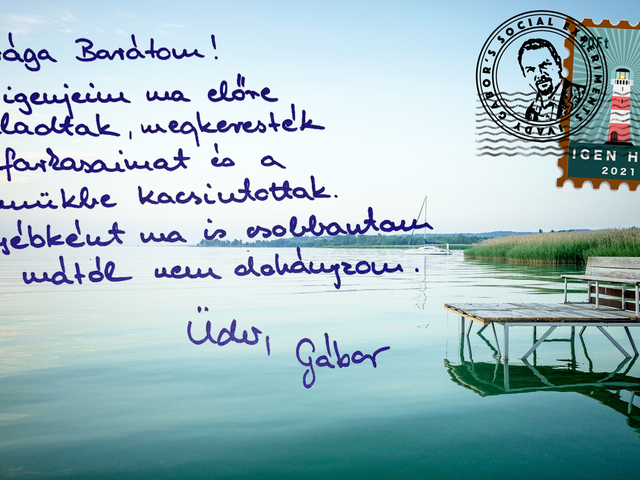 rága Barátom!
igenjeim ma előre
ladtak, megkeresték
farkasaimat és a
mükbe kacsintottak.
yébként ma is csobbantam
mától nem dohányzom.
Üdv,
Gábor
GÁBOR'S SOCIAL EXPERIMENTS
VADY
Ft
IGEN H
2021